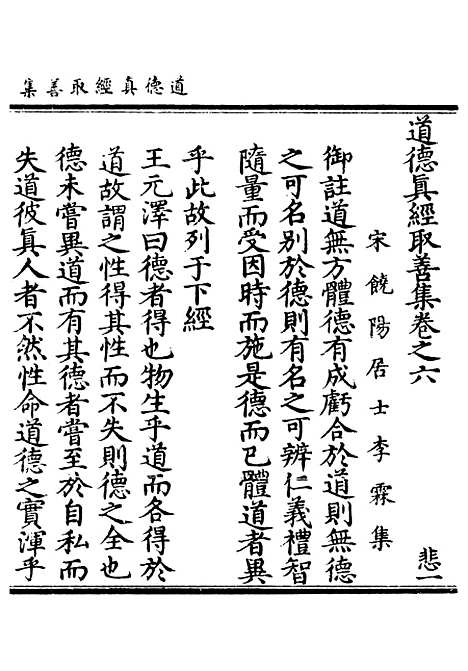 道德真經取善集
道德眞經取善集卷之六　悲一
宋饒陽居士李霖集
御註道無方體德有成虧合於道則無德
之可名別於德則有名之可辨仁義禮智
隨量而受因時而施是德而已體道者異
乎此故列于下經
王元澤曰德者得也物生乎道而各得於
道故謂之性得其性而不失則德之全也
德未嘗異道而有其德者嘗至於自私而
失道彼眞人者不然性命道德之實渾乎